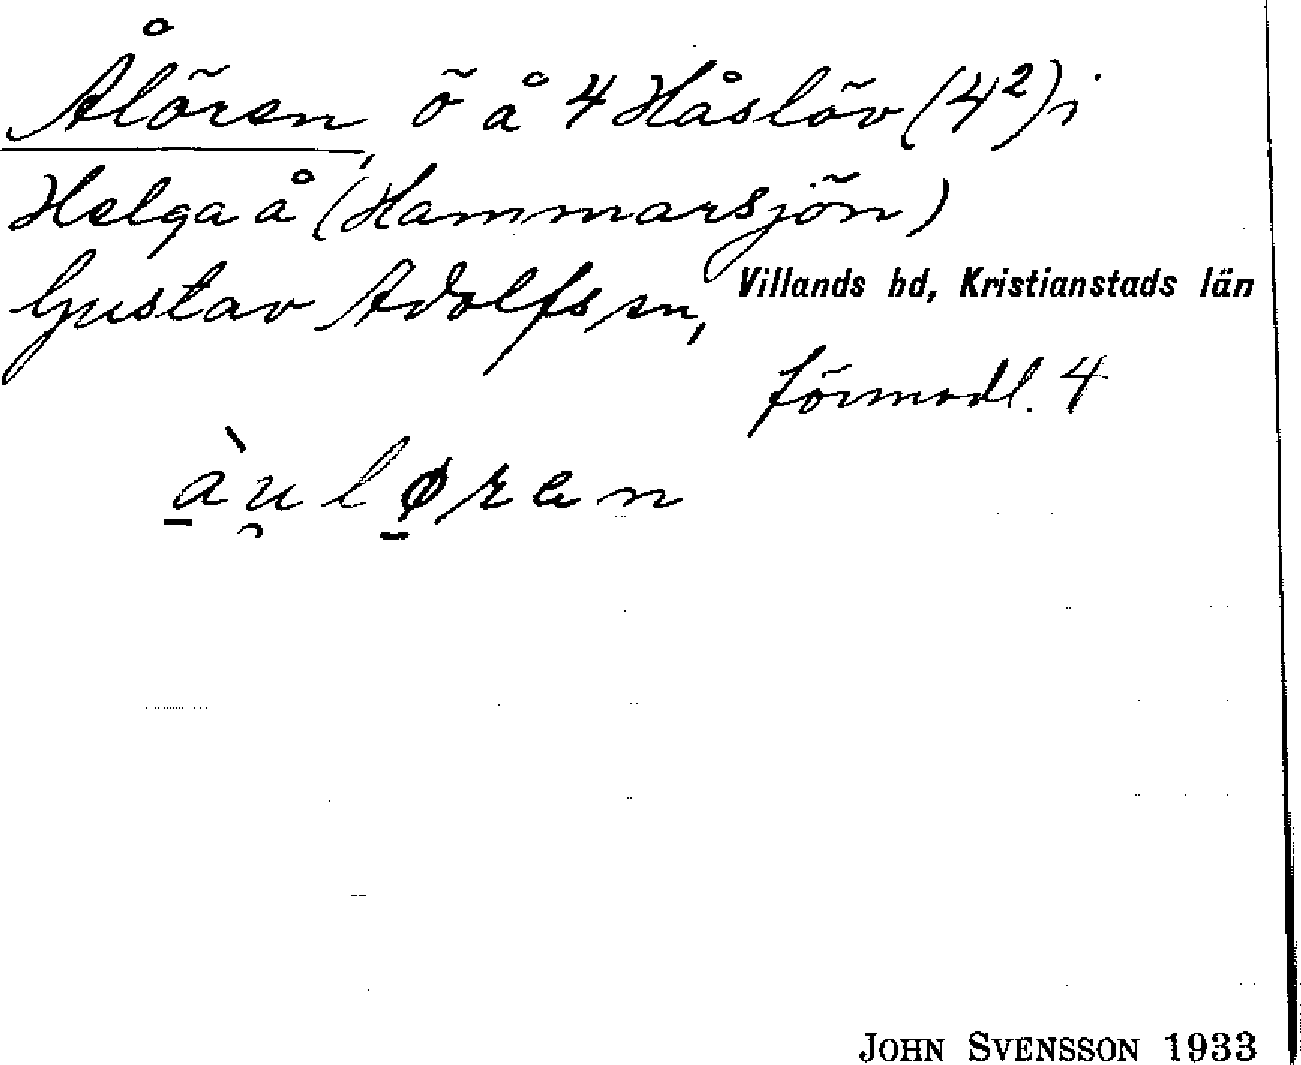 Ålören, ö å 4 Håslöv (4²) i
Helgaå (Hammarsjön)
Gustav Adolfs sn, Villands hd, Kristianstads län
förmodl. 4
àu̯løren
JOHN SVENSSON 1933